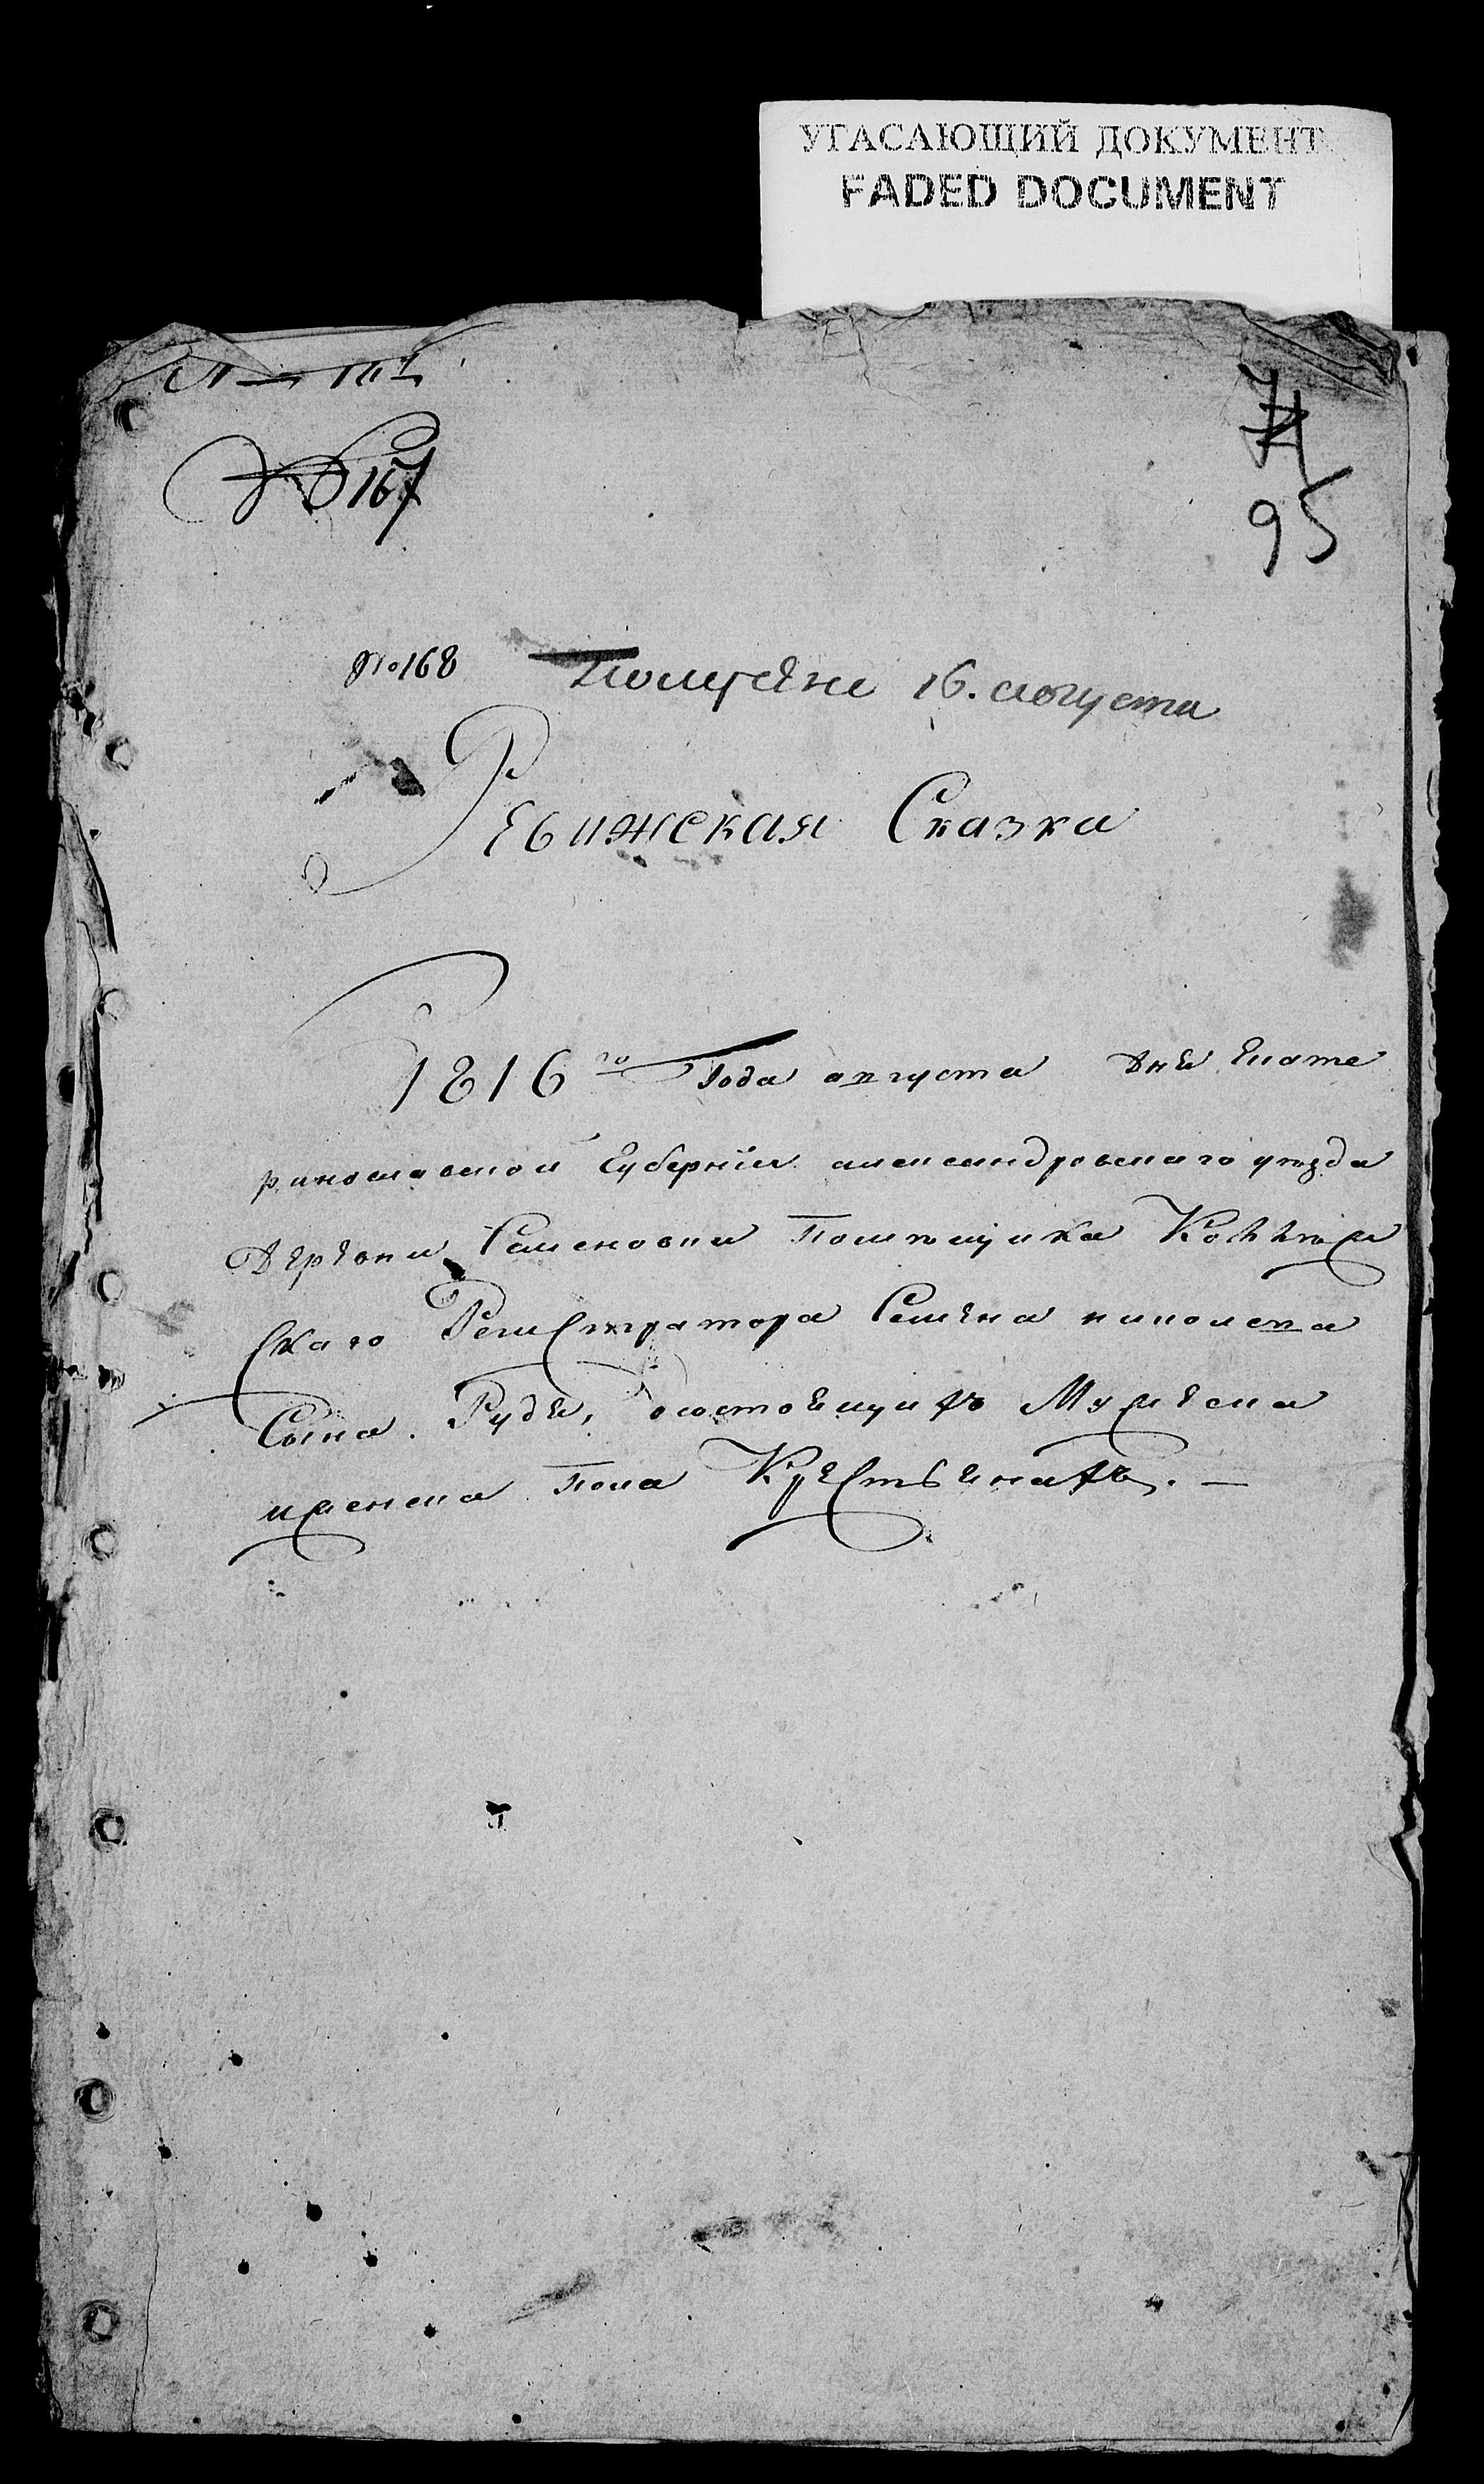 УГАСАЮЩИЙ ДОКУМЕНТ
FADED DOCUMENT
№ 167
95
№ 168 Получене 16. августа
Ревижская Сказка
1816го Года августа дня Екате
ринославской Губернiи александровскаго уезда
Деревни Семеновки Помещика Коллеж
Скаго Регистратора Семена николаева
Сына Рудя, осостоящихъ Мужеска
иженска пола Крестьянахъ. —